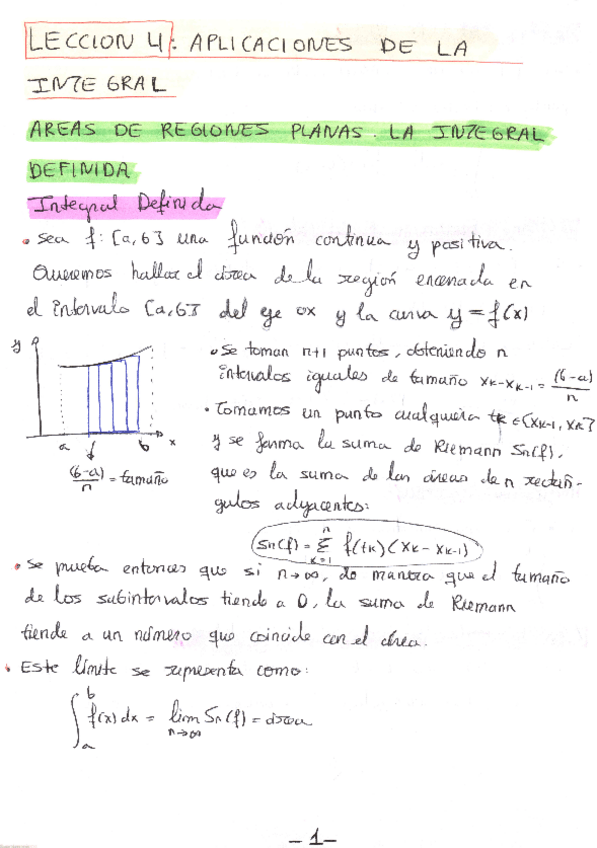 LECCION 4: APLICACIONES DE LA
INTEGRAL
AREAS DE REGIONES PLANAS. LA INTEGRAL
DEFINIDA
Integral Definida
• Sea f: [a,b] una función continua y positiva.
Queremos hallar el área de la región encerrada en
el intervalo [a,b] del eje ox y la curva y = f(x)
y
a b x
(b-a)/n = tamaño
• Se toman n+1 puntos, obteniendo n
intervalos iguales de tamaño xk-xk-1 = (b-a)/n
• Tomamos un punto cualquiera tk ∈ [xk-1, xk]
y se forma la suma de Riemann Sn(f),
que es la suma de las áreas de n rectán-
gulos adyacentes:
Sn(f) = Σ k=1 n f(tk) (xk - xk-1)
• Se prueba entonces que si n→∞, de manera que el tamaño
de los subintervalos tiende a 0, la suma de Riemann
tiende a un número que coincide con el área.
• Este límite se representa como:
∫ a b f(x) dx = lim n→∞ Sn(f) = área
- 1 -